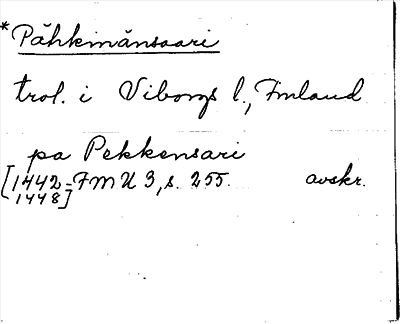 *Pähkinänsaari
trol. i Viborgs l., Finland
pa Pekkensari
[1442-FMU 3, s. 255. avskr.
1448]